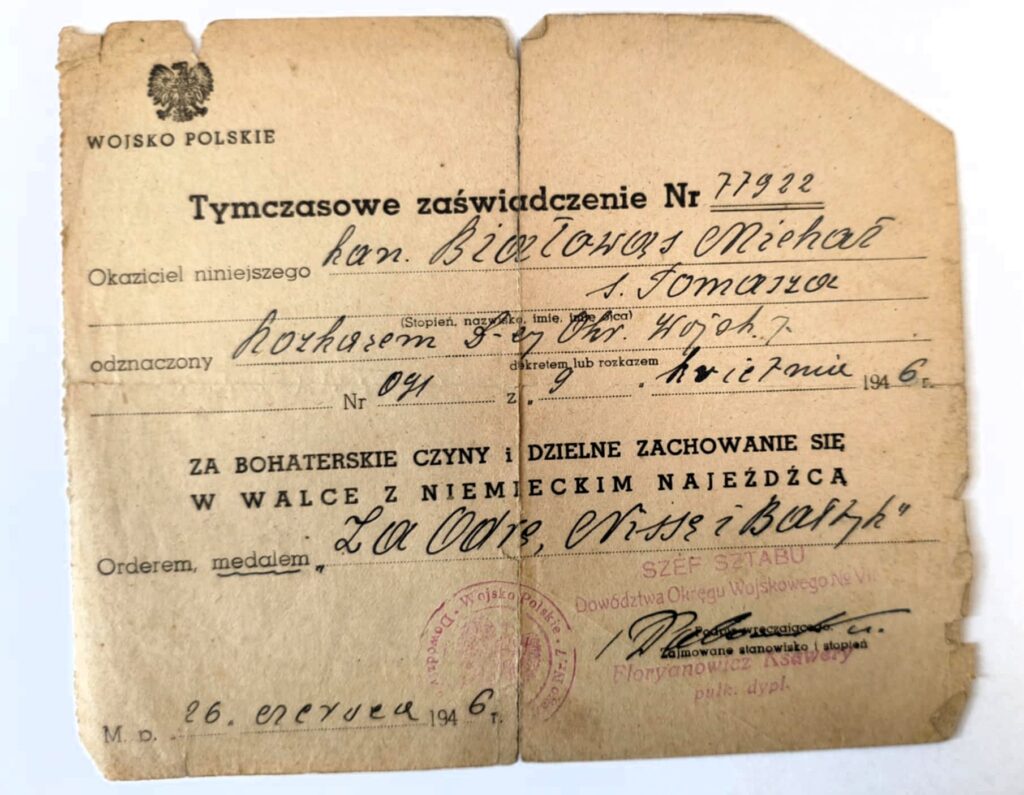 WOJSKO POLSKIE
Tymczasowe zaświadczenie Nr 77922
Okaziciel niniejszego kan. Białowąs Michał
s. Tomasza
(Stopień, nazwisko, imię, imię ojca)
odznaczony Rozkazem D-cy Okr. Wojsk. 7
dekretem lub rozkazem
Nr 091 z „9" kwietnia 1946 r.
ZA BOHATERSKIE CZYNY i DZIELNE ZACHOWANIE SIĘ
W WALCE Z NIEMIECKIM NAJEŹDŹCĄ
Orderem, medalem „Za Odrę, Nissę i Bałtyk"
SZEF SZTABU
Dowództwa Okręgu Wojskowego № VII
Wojsko Polskie
Podpis wręczającego.
Zajmowane stanowisko i stopień
Floryanowicz Ksawery
pułk. dypl.
M. p. 26. czerwca 1946 r.